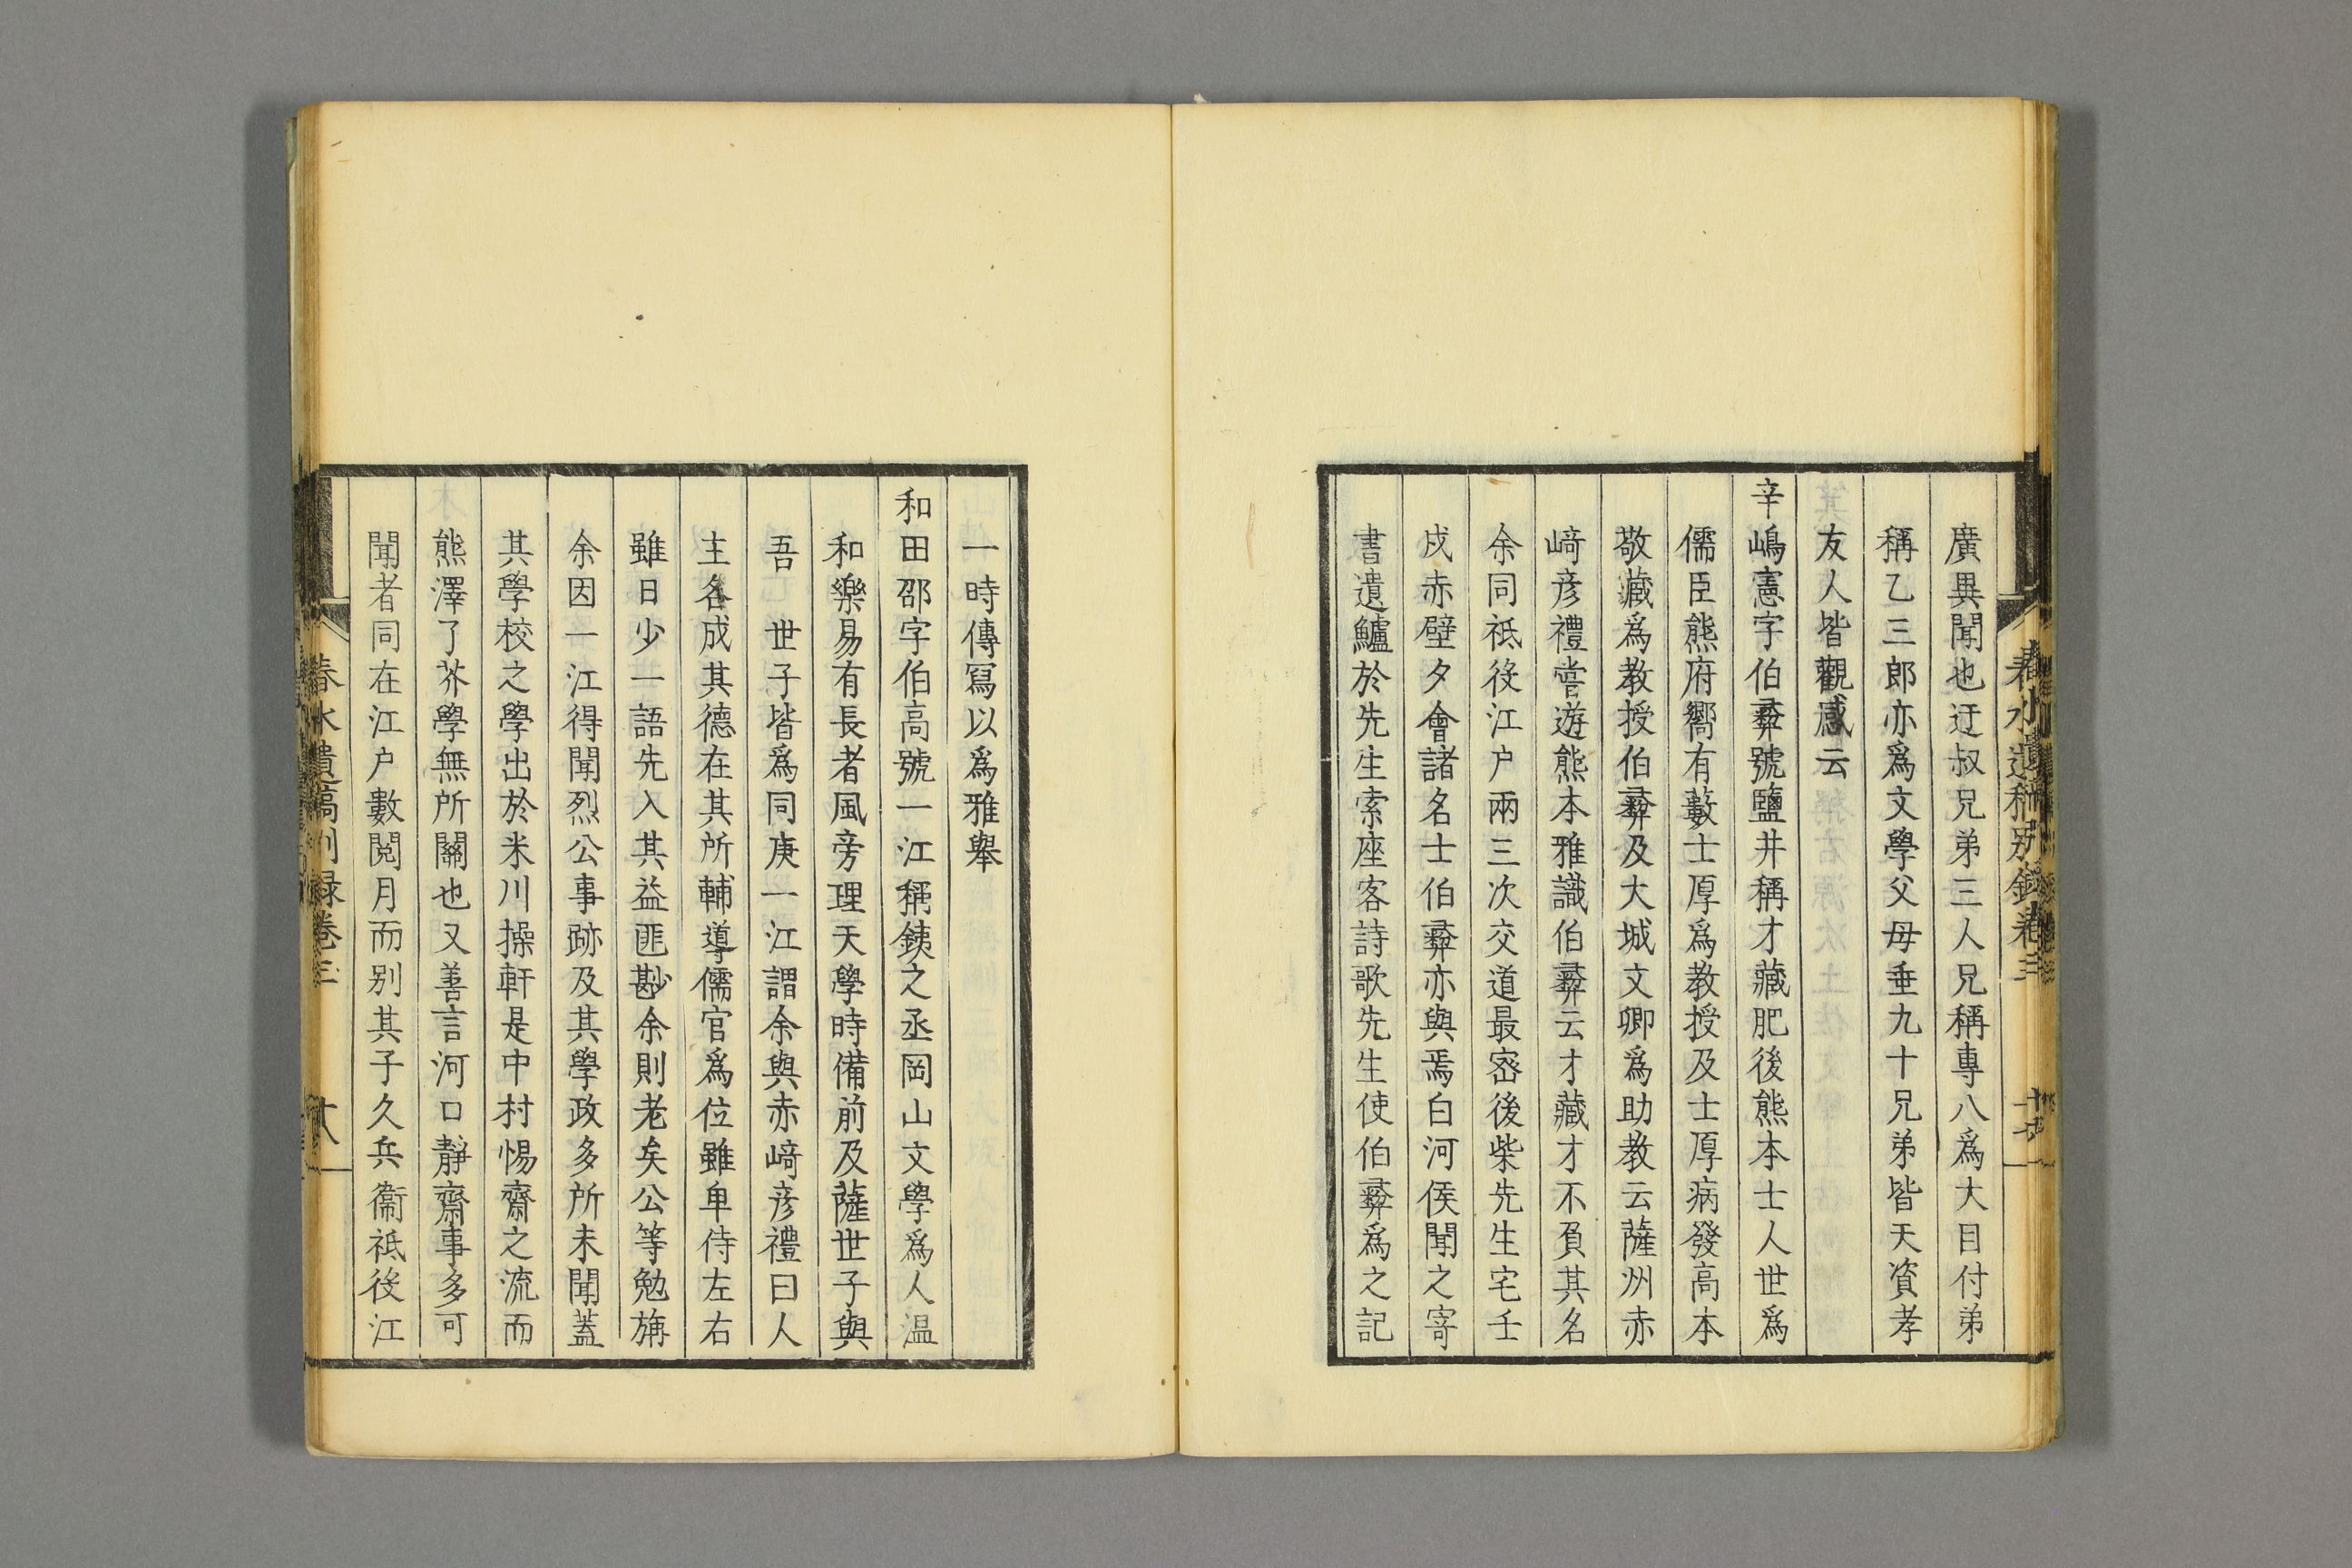 春水遺稿別録卷三
廣異聞也迂叔兄弟三人兄稱專八爲大目付弟
稱乙三郎亦爲文學父母垂九十兄弟皆天資孝
友人皆觀感云
辛嶋憲字伯彜號鹽井稱才藏肥後熊本士人世爲
儒臣熊府嚮有藪士厚爲教授及士厚病發高本
敬藏爲教授伯彜及大城文卿爲助教云薩州赤
﨑彦禮嘗遊熊本雅識伯彜云才藏才不負其名
余同祗役江户兩三次交道最密後柴先生宅壬
戌赤壁夕會諸名士伯彜亦與焉白河侯聞之寄
書遺鱸於先生索座客詩歌先生使伯彜爲之記
一時傳寫以爲雅舉
和田邵字伯高號一江稱銕之丞岡山文學爲人温
和樂易有長者風旁理天學時備前及薩世子與
吾　世子皆爲同庚一江謂余與赤﨑彦禮曰人
主各成其德在其所輔導儒官爲位雖卑侍左右
雖日少一語先入其益匪尠余則老矣公等勉旃
余因一江得聞烈公事跡及其學政多所未聞蓋
其學校之學出於米川操軒是中村惕齋之流而
熊澤了芥學無所關也又善言河口靜齋事多可
聞者同在江户數閲月而别其子久兵衞祗役江
春水遺稿別録卷三
十八